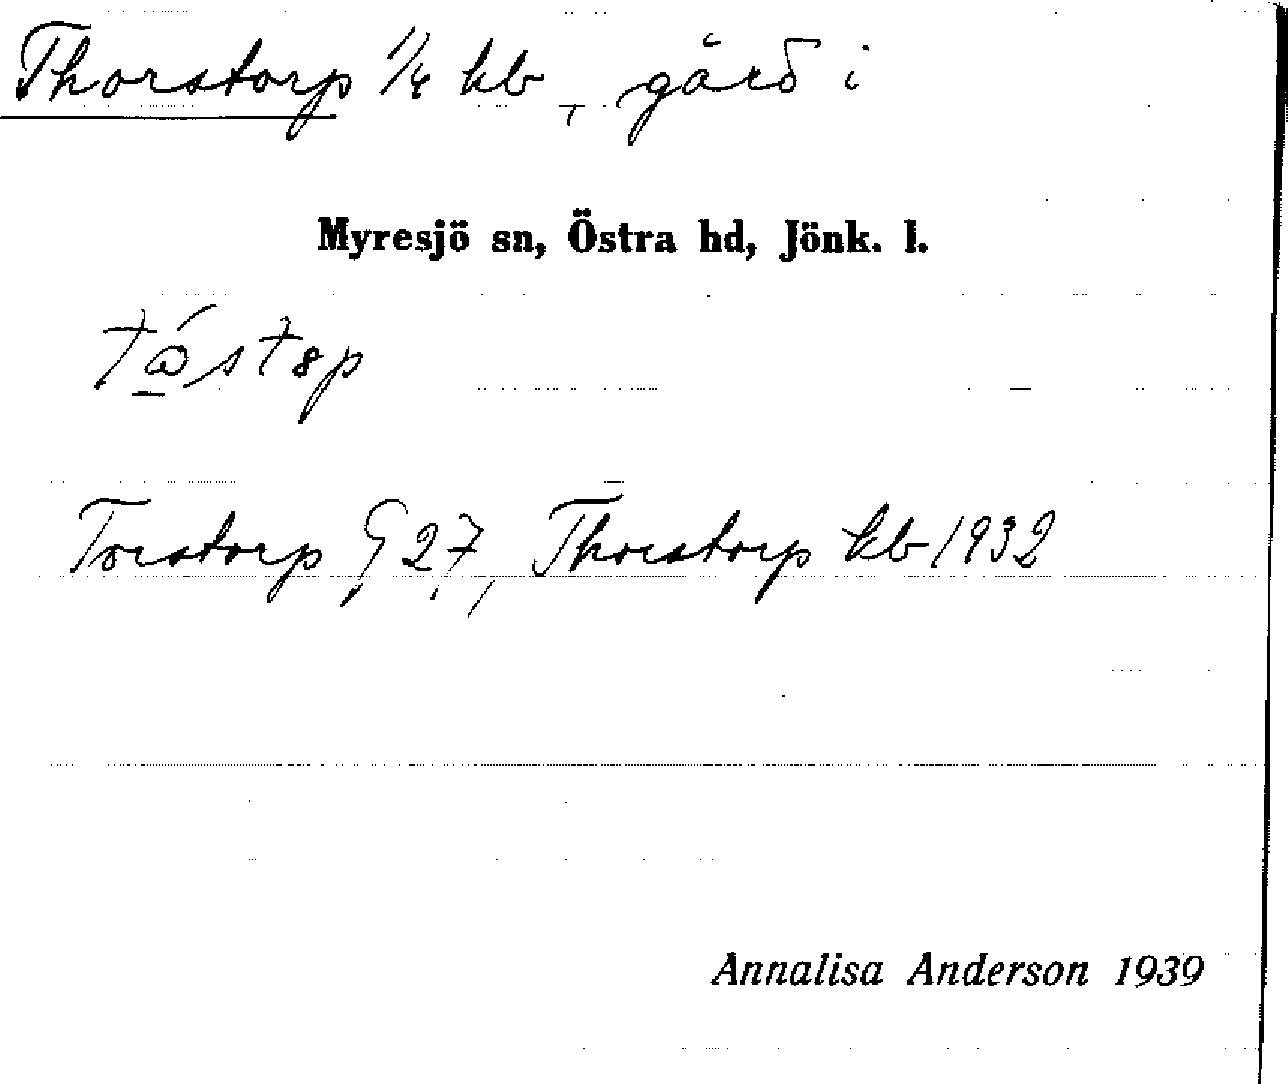 Thorstorp 1/4 kb, gård i
Myresjö sn, Östra hd, Jönk. l.
Torstorp G 27, Thorstorp kb 1932
Annalisa Anderson 1939